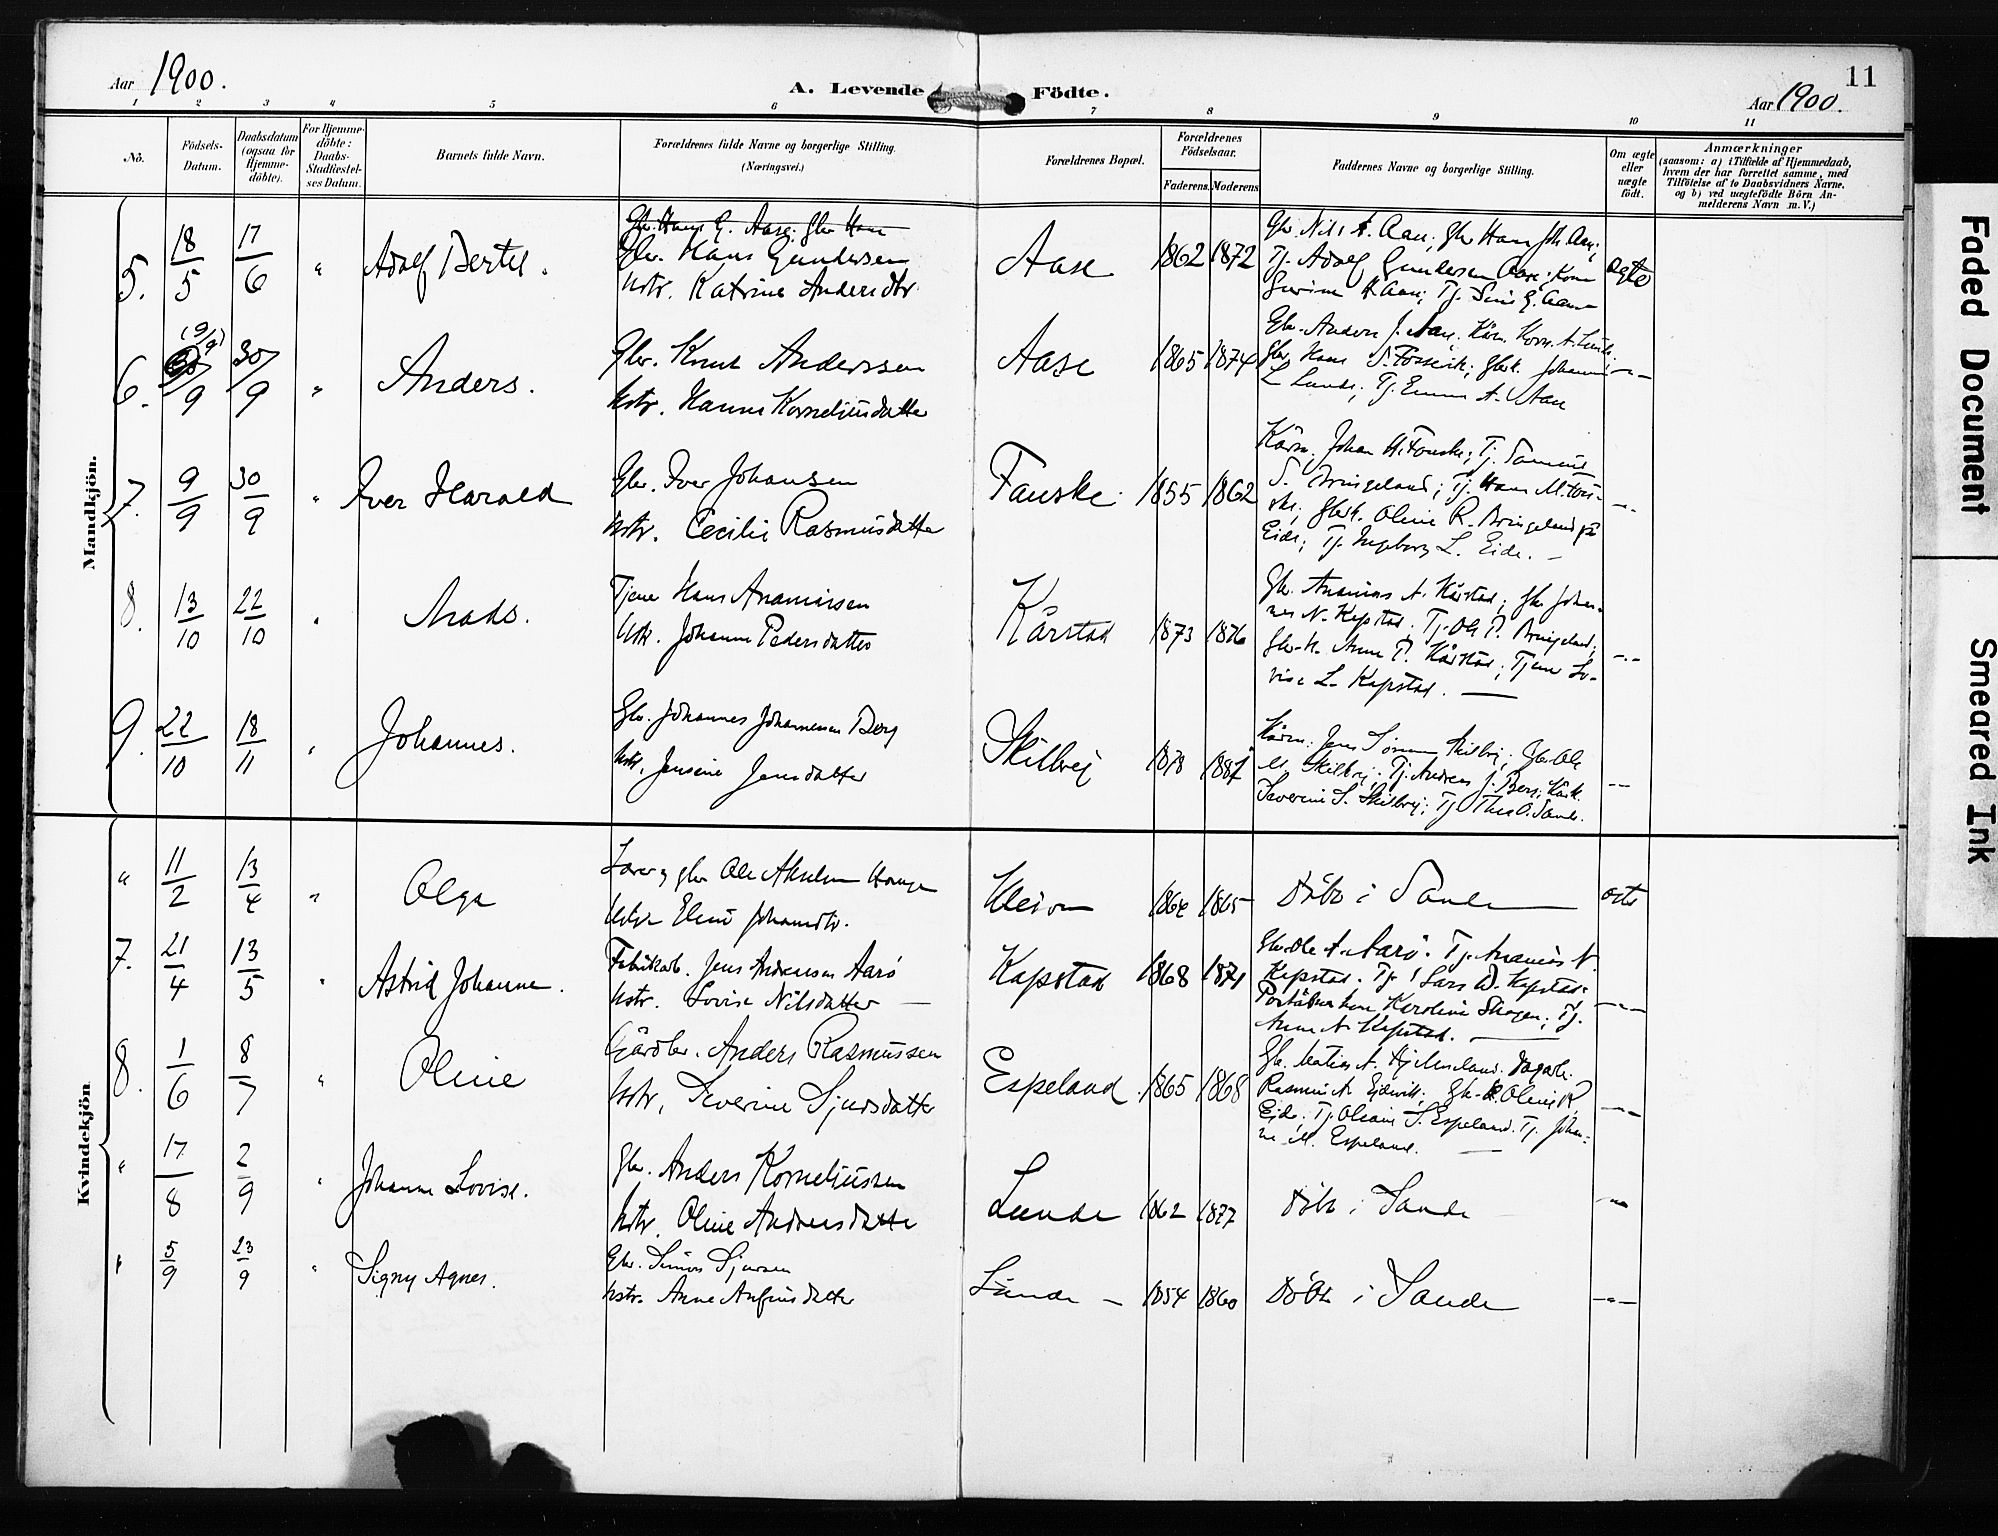 Aar 1900.
A. Levende Födte.
Aar 1900.
11
1 2 3 4 5 6 7 8 9 10 11
No.
Födsels-Datum.
Daabsdatum (ogsaa for Hjemme-döbte).
For Hjemme-döbte: Daabs-Stadfæstel-ses Datum.
Barnets fulde Navn.
Forældrenes fulde Navne og borgerlige Stilling.
(Næringsvei.)
Forældrenes Bopæl.
Forældrenes Födselsaar.
Faderens. Moderens.
Faddernes Navne og borgerlige Stilling.
Om ægte eller uægte födt.
Anmærkninger
(saasom: a) i Tilfælde af Hjemmedaab,
hvem der har forrettet samme, med
Tilföielse af to Daabsvidners Navne,
og b) ved uægtefödte Börn An-
melderens Navn m. V.)
Mandkjön.
5. 18/5 17/6 " Adolf Bertel.
Gbr. Hans G. Aase; Gbr Han
Gbr. Hans Gundersen
hstr. Katrine Andersdtr.
Aase 1862 1872
Gbr. Nils A. Aase; Gbr Hans Joh. Aase;
Tj. Adolf Gundersen Aase; Kone
ægte
6. (9/9) 9 30/9 " Anders.
Gbr. Knut Anderssen
hstr. Hanne Korneliusdatter
Aase 1865 1874
Gbr. Anders J. Aase, Kårm. Korn. A. Lunde;
Gbr Hans S. Fossevik; Gbrk. Johanne
L Lunde; Tj. Emma A. Aase
-"-
7. 9/9 30/9 " Iver Harald
Gbr. Iver Johansen
hstr. Cecilie Rasmusdatter
Fauske. 1855 1862
Kårm. Johan H. Fauske; Tj. Samuel
S. Bringeland; Tj. Hans M. Fau-
ske; Gbrk. Oline R. Bringeland på
Eide; Tj. Ingeborg L. Eide. —
-"-
8. 13/10 22/10 " Mads.
Tjener Hans Ananiassen
Hstr. Johanne Pedersdatter
Kårstad 1873 1876
Gbr. Ananias A. Kårstad; Gbr Johan-
nes N. Kapstad. Tj. Ole P. Bringeland;
Gbr-k. Anne P. Kårstad; Tjener Lo-
vise L. Kapstad. —
-"-
9. 22/10 18/11 " Johannes.
Gbr. Johannes Johannesen Berg
hstr. Jensine Jensdatter
Skilbrej
Kårm. Jens Skilbrej; Gbr Ole
M. Skilbrej; Tj. Andreas J. Berg; Kårk.
Severine S. Skilbrej; Tj. Thea O. Sande.
-"-
Kvindekjön
" 11/2 13/4 " Olga
Lærer og gbr Ole Akselsen
hstr Eline Johansdtr.
1864 1865
Döbt i Sande —
7. 21/4 13/5 " Astrid Johanne.
Fabrikarb. Jens Andreasen Aarö
hstr. Lovise Nilsdatter —
Kapstad 1868 1871
Gbr. Ole A. Aarö. Tj. Ananias N.
Kapstad. Tj. Lars D. Kapstad.
Karoline Skogen; Tj.
Anne N. Kapstad. —
-"-
8. 1/6 8/7 " Oline
Gårdbr. Anders Rasmussen
hstr. Severine Sjursdatter
Espeland 1865 1868
Gbr. Matias A. Hjelmeland.
Rasmus A. Eidevik; Gbr-k. Oline R.
Eide; Tj. S. Espeland. Tj. Johan-
ne M. Espeland. —
-"-
" 17/8 2/9 " Johanne Lovise.
Gbr. Anders Korneliussen
hstr. Oline Andreasdatter
Lunde 1862 1877
Döbt i Sande
-"-
" 5/9 23/9 " Signy Agnes.
Gbr. Simon Sjursen
hstr. Anne Anfinsdatter
Lunde — 1854 1860
Döbt i Sande
-"-
Faded Document
Smeared Ink